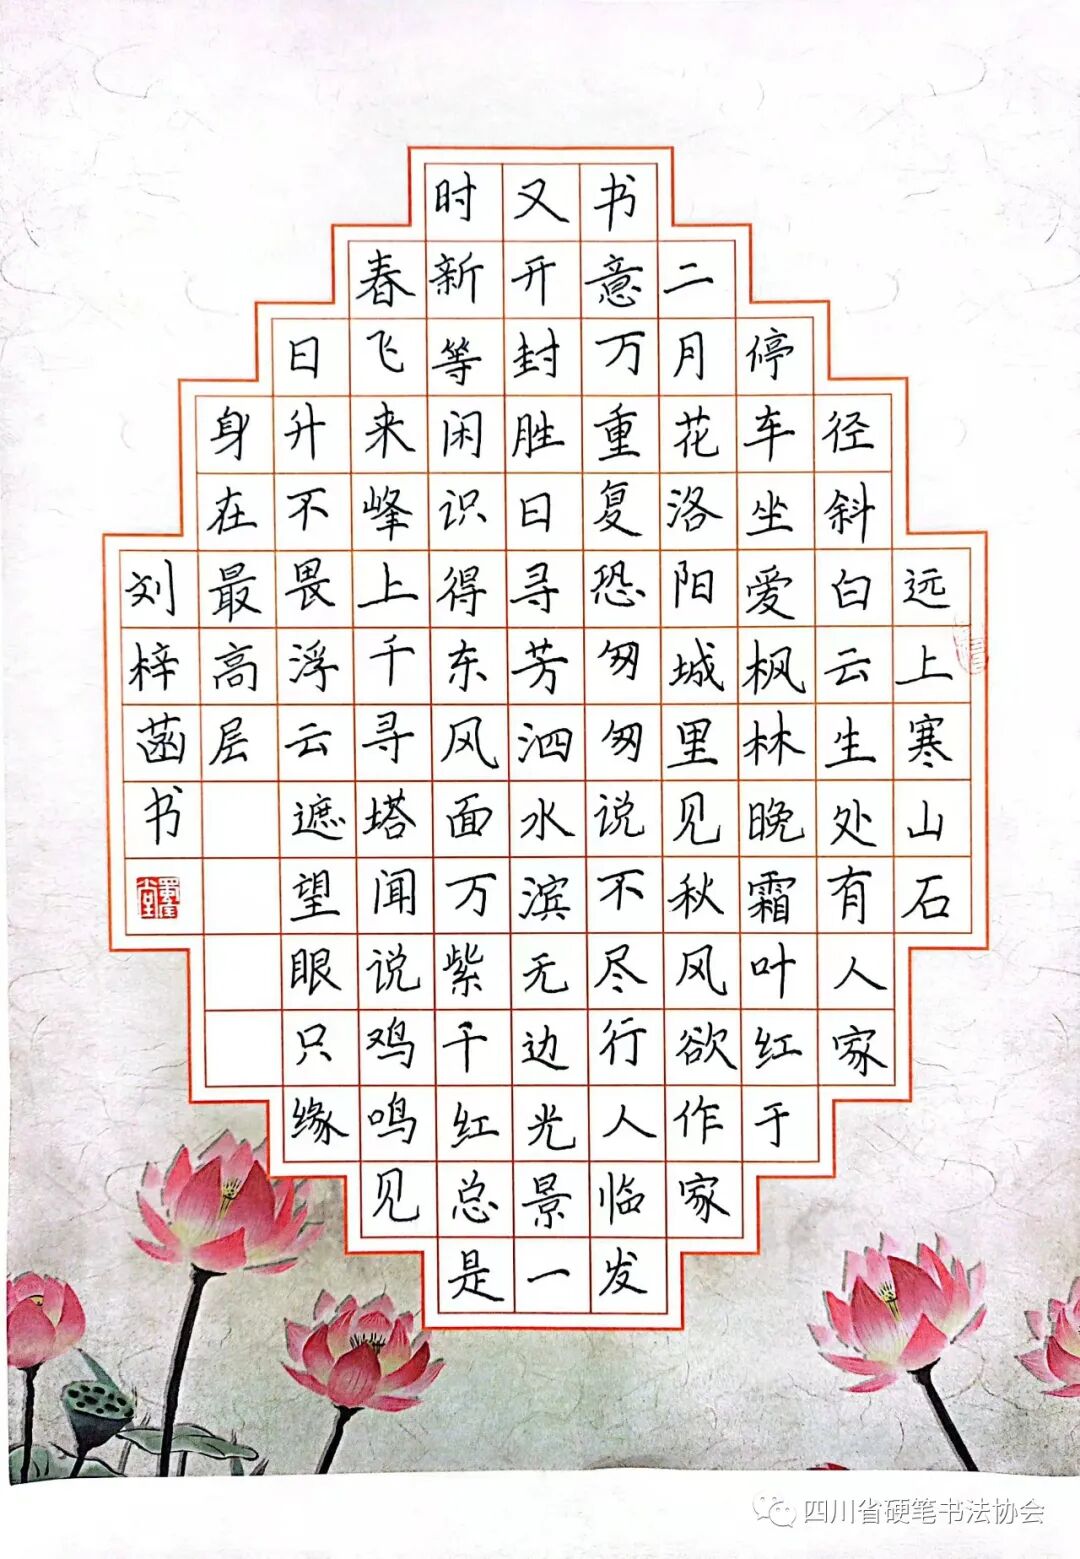 远上寒山石
径斜白云生处有人家
停车坐爱枫林晚霜叶红于
二月花洛阳城里见秋风欲作家
书意万重复恐匆匆说不尽行人临发
又开封胜日寻芳泗水滨无边光景一
时新等闲识得东风面万紫千红总是
春飞来峰上千寻塔闻说鸡鸣见
日升不畏浮云遮望眼只缘
身在最高层
刘梓菡书
四川省硬笔书法协会